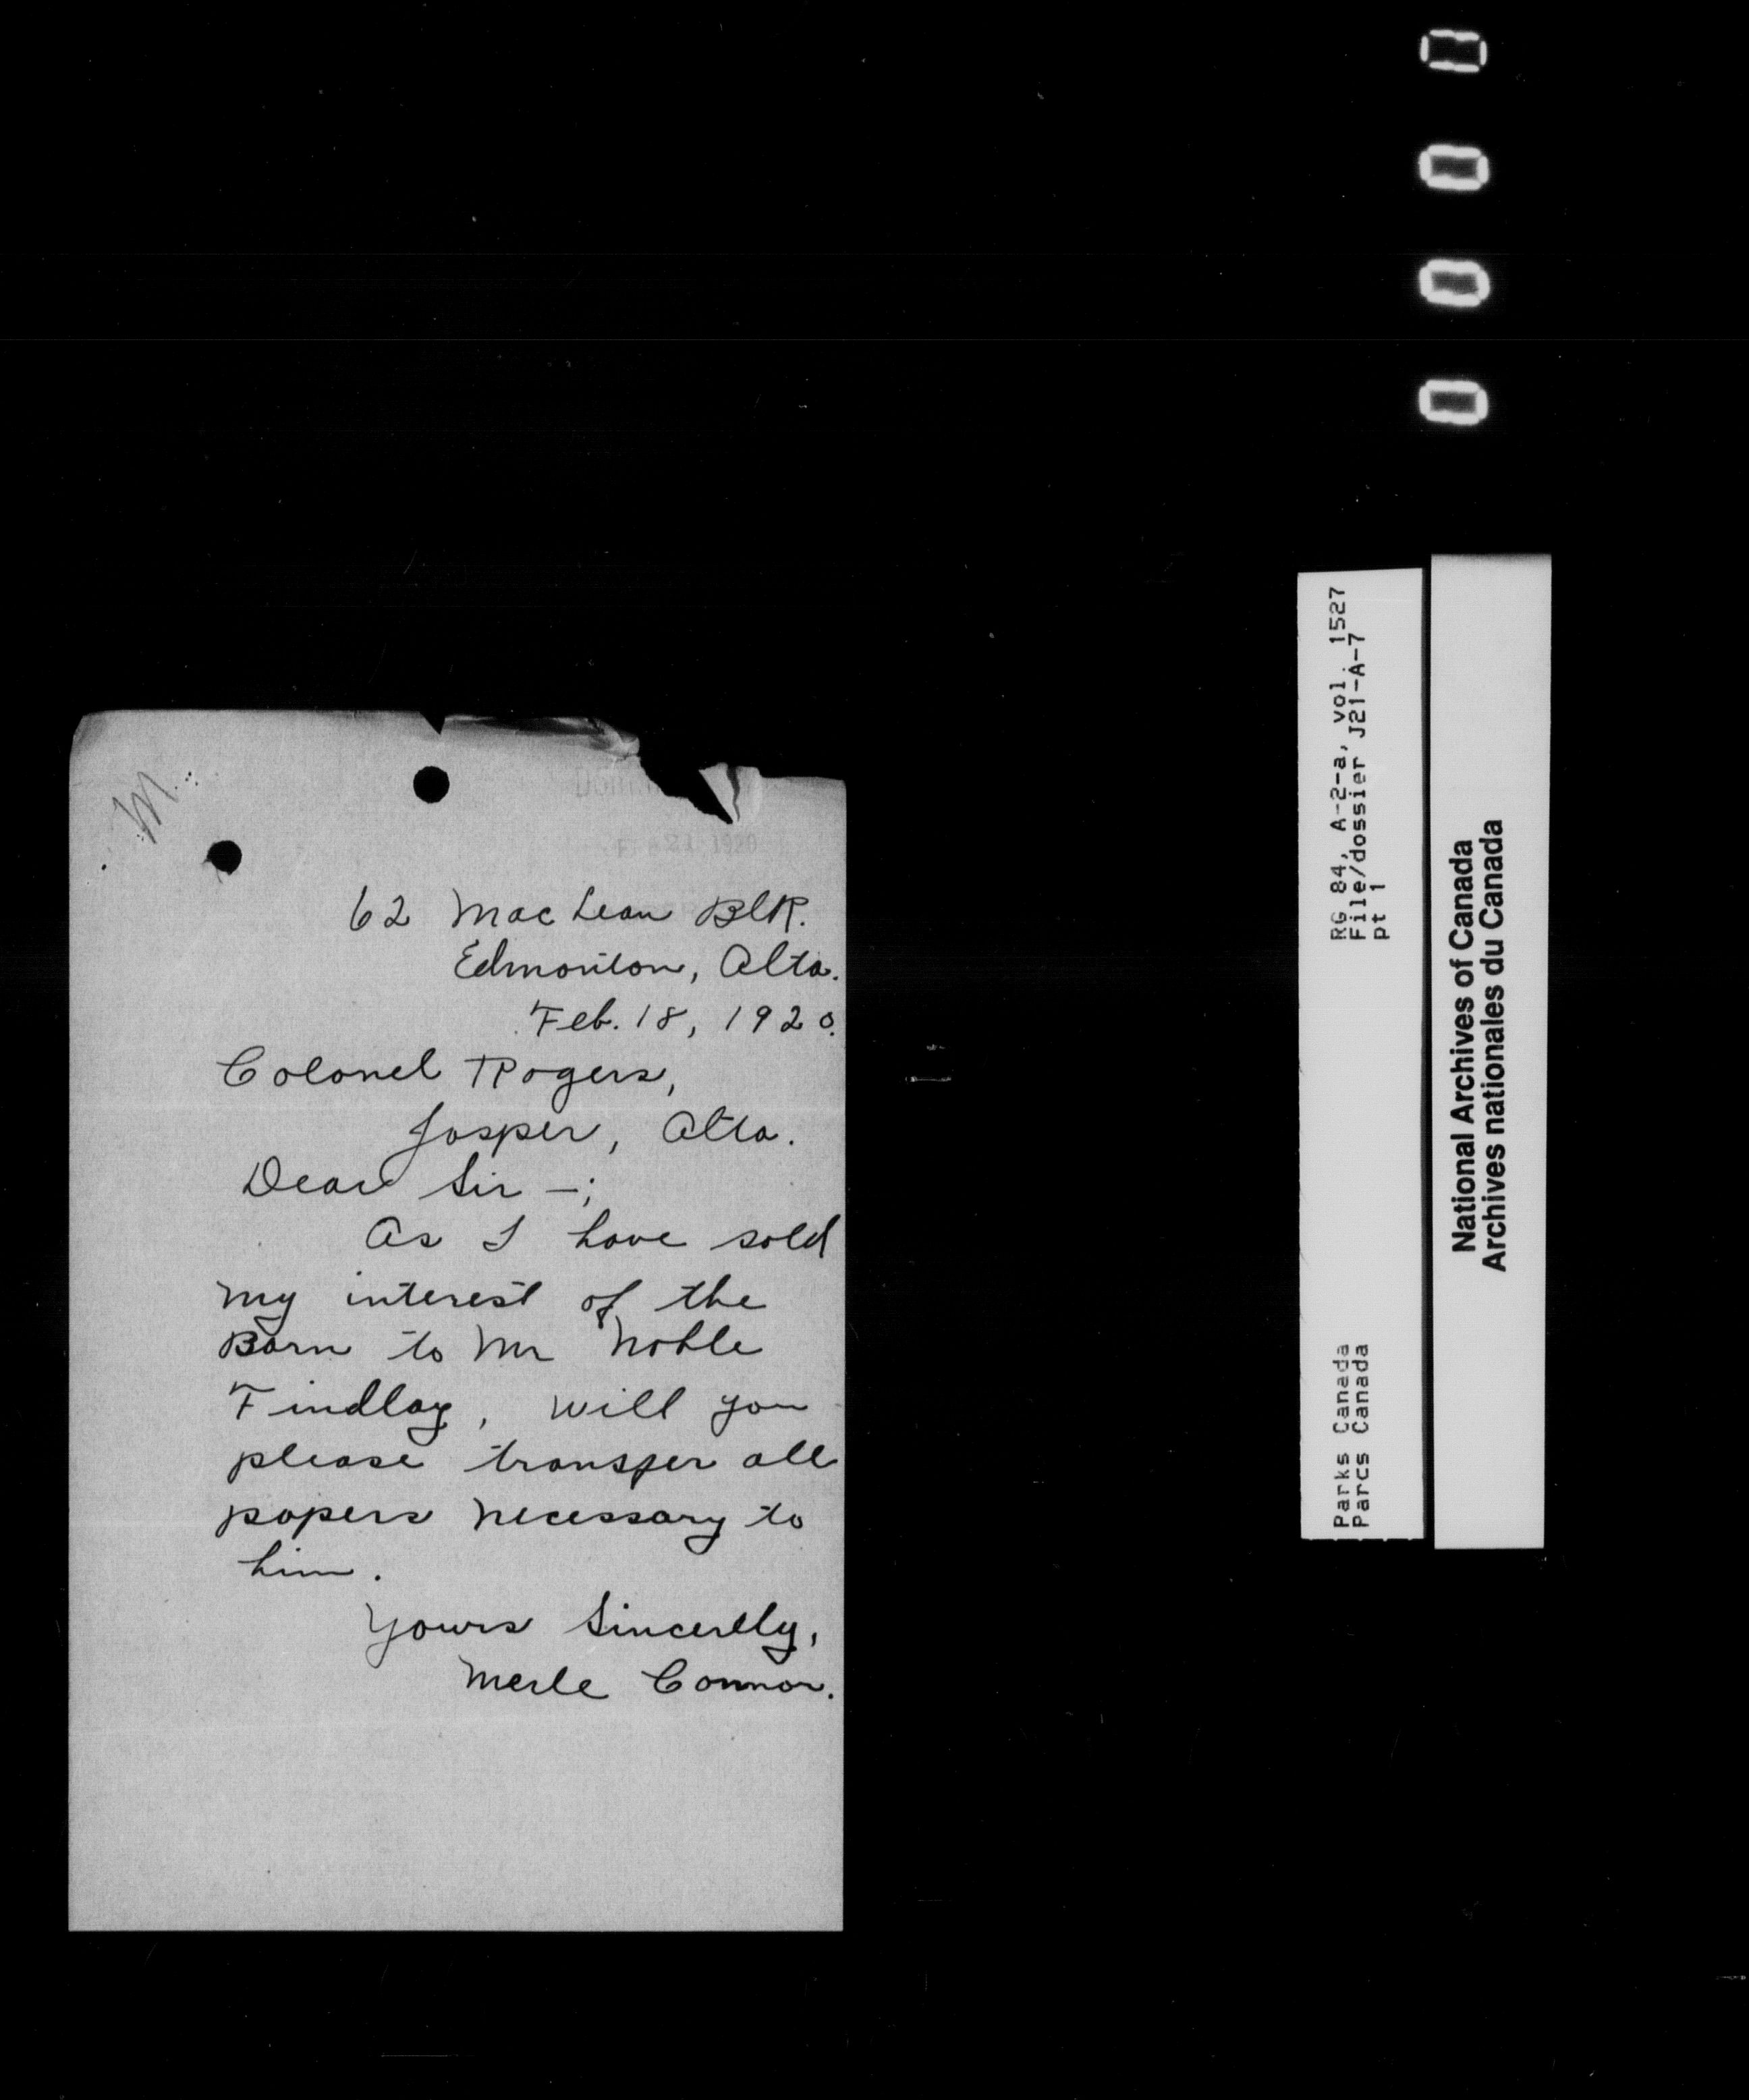 M
FEB 21 1920
62 MacLean Blk.
Edmonton, Alta.
Feb. 18, 1920.
Colonel Rogers,
Jasper, Alta.
Dear Sir -;
As I have sold
my interest of the
Barn to Mr Noble
Findlay, will you
please transfer all
papers necessary to
him.
Yours Sincerely,
Merle Connor.
0000
RG 84, A-2-a, vol. 1527
File/dossier J21-A-7
pt 1
Parks Canada
Parcs Canada
National Archives of Canada
Archives nationales du Canada